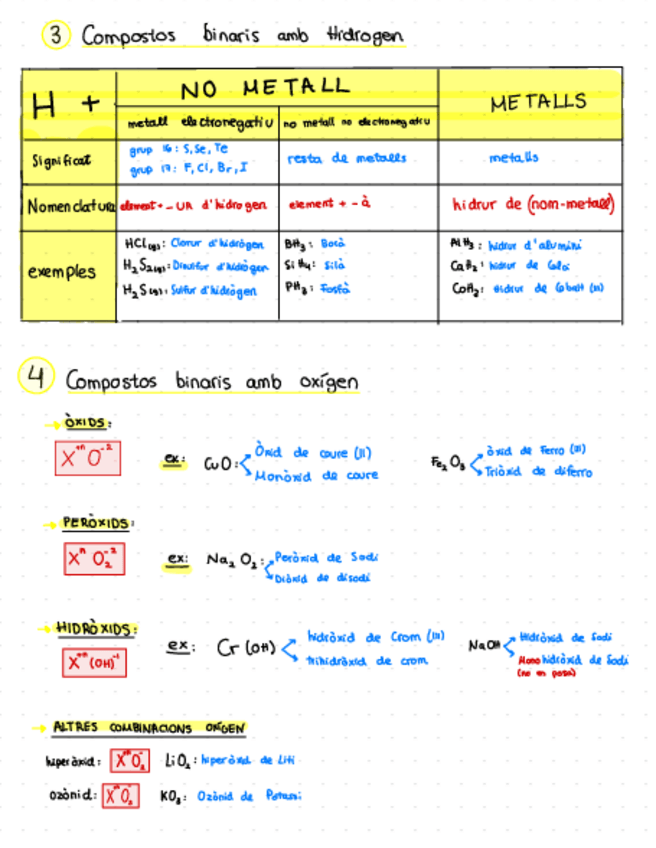 3 Compostos binaris amb Hidrogen
H +
NO METALL
METALLS
metall electronegatiu
no metall no electronegatiu
Significat
grup 16: S, Se, Te
grup 17: F, Cl, Br, I
resta de metalls
metalls
Nomenclatura
element + -UR d'hidrogen
element + -à
hidrur de (nom-metall)
exemples
HCl(g): Clorur d'hidrògen
H2S2(g): Disulfur d'hidrògen
H2S(g): Sulfur d'hidrògen
BH3: Borà
SiH4: Silà
PH3: Fosfà
AlH3: hidrur d'alumini
CaH2: hidrur de Calci
CoH2: Hidrur de Cobalt (II)
4 Compostos binaris amb oxígen
→ ÒXIDS:
X+n O-2
ex: CuO:
Òxid de coure (II)
Monòxid de coure
Fe2O3
òxid de Ferro (III)
Triòxid de diferro
→ PERÒXIDS:
Xn O2-2
ex: Na2O2:
Peròxid de Sodi
Diòxid de disodi
→ HIDRÒXIDS:
X+n(OH)-1
ex: Cr(OH)
hidròxid de Crom (III)
trihidròxid de crom
NaOH
Hidròxid de Sodi
Monohidròxid de Sodi
(no en posa)
→ ALTRES COMBINACIONS OXÍGEN
hiperòxid: X+nO2- LiO2: hiperòxid de Liti
ozònid: X+nO3- KO3: Ozònid de Potassi